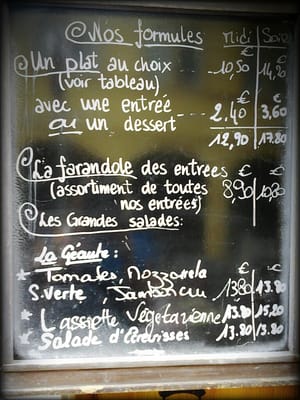 Nos formules Midi Soir
€ €
Un plat au choix 10,50 14,20
(voir tableau)
avec une entrée 2.40 3,60
ou un dessert
12,90 17.80
La farandole des entrées € €
(assortiment de toutes 8,90 10,80
nos entrées)
Les Grandes salades:
La Géante: € €
Tomates, Mozzarela
S.verte, Jambon cru 13.80 13.80
L'assiette Végétarienne 13.80 15,20
Salade d'Écrevisses 13.80 13.80